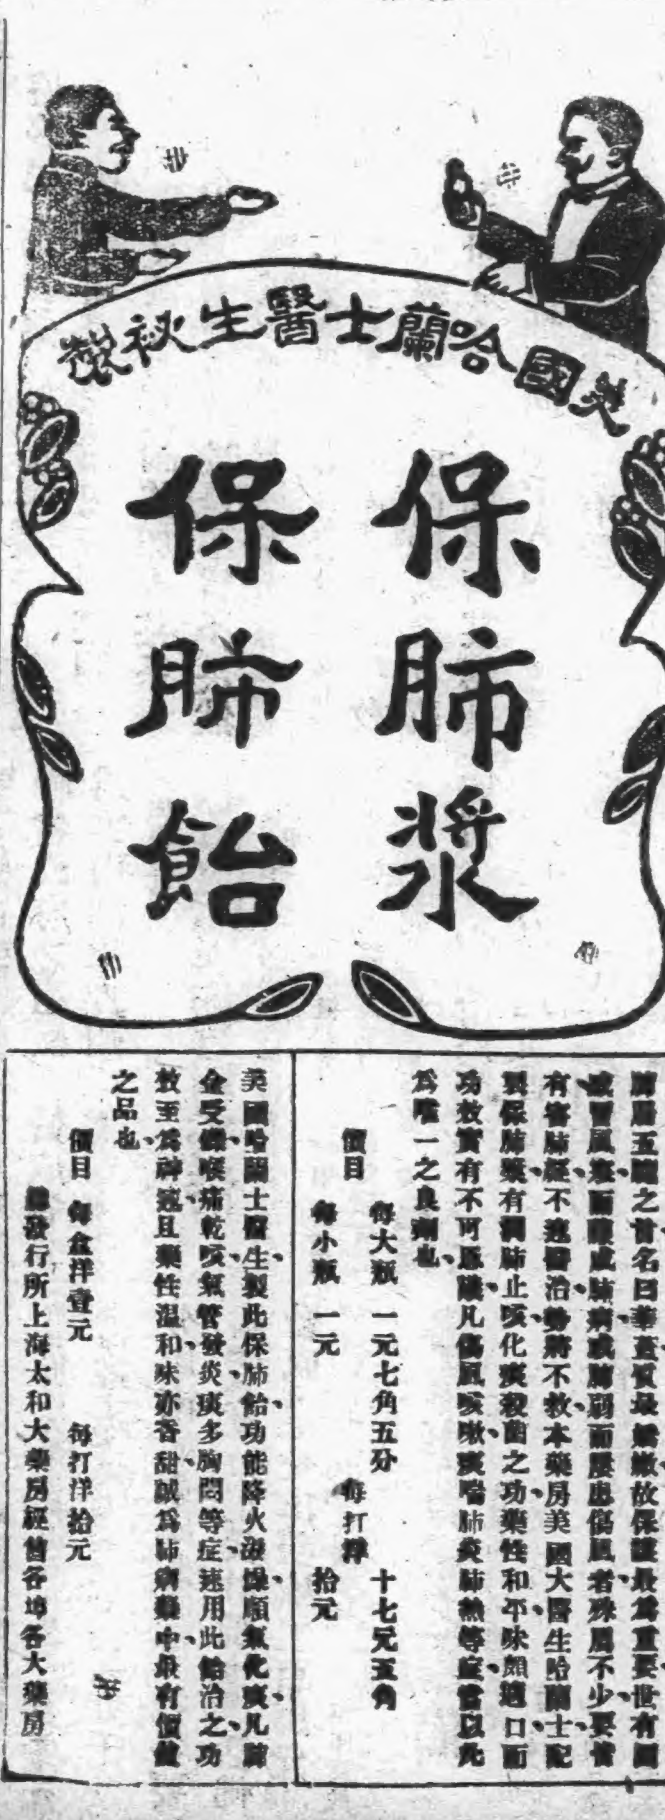 美國哈蘭士醫生秘製
保肺漿
保肺飴
肺居五臟之首名曰華蓋質最嬌嫩故保護最為重要世有因
感冒風寒而釀成肺病或肺弱而屢患傷風者殊屬不少要皆
有害肺經不速醫治勢將不救本藥房美國大醫生哈蘭士配
製保肺漿有潤肺止咳化痰殺菌之功藥性和平味頗適口而
功效實有不可思議凡傷風咳嗽痰喘肺炎肺熱等症當以此
為唯一之良劑也
價目
每大瓶 一元七角五分
每小瓶 一元
每打洋
十七元五角
拾元
美國哈蘭士醫生製此保肺飴功能降火滋燥順氣化痰凡肺
金受傷喉痛乾咳氣管發炎痰多胸悶等症速用此飴治之功
效至為神速且藥性温和味亦香甜誠為肺病藥中最有價值
之品也
價目 每盒洋壹元 每打洋拾元
總發行所上海太和大藥房經售各埠各大藥房